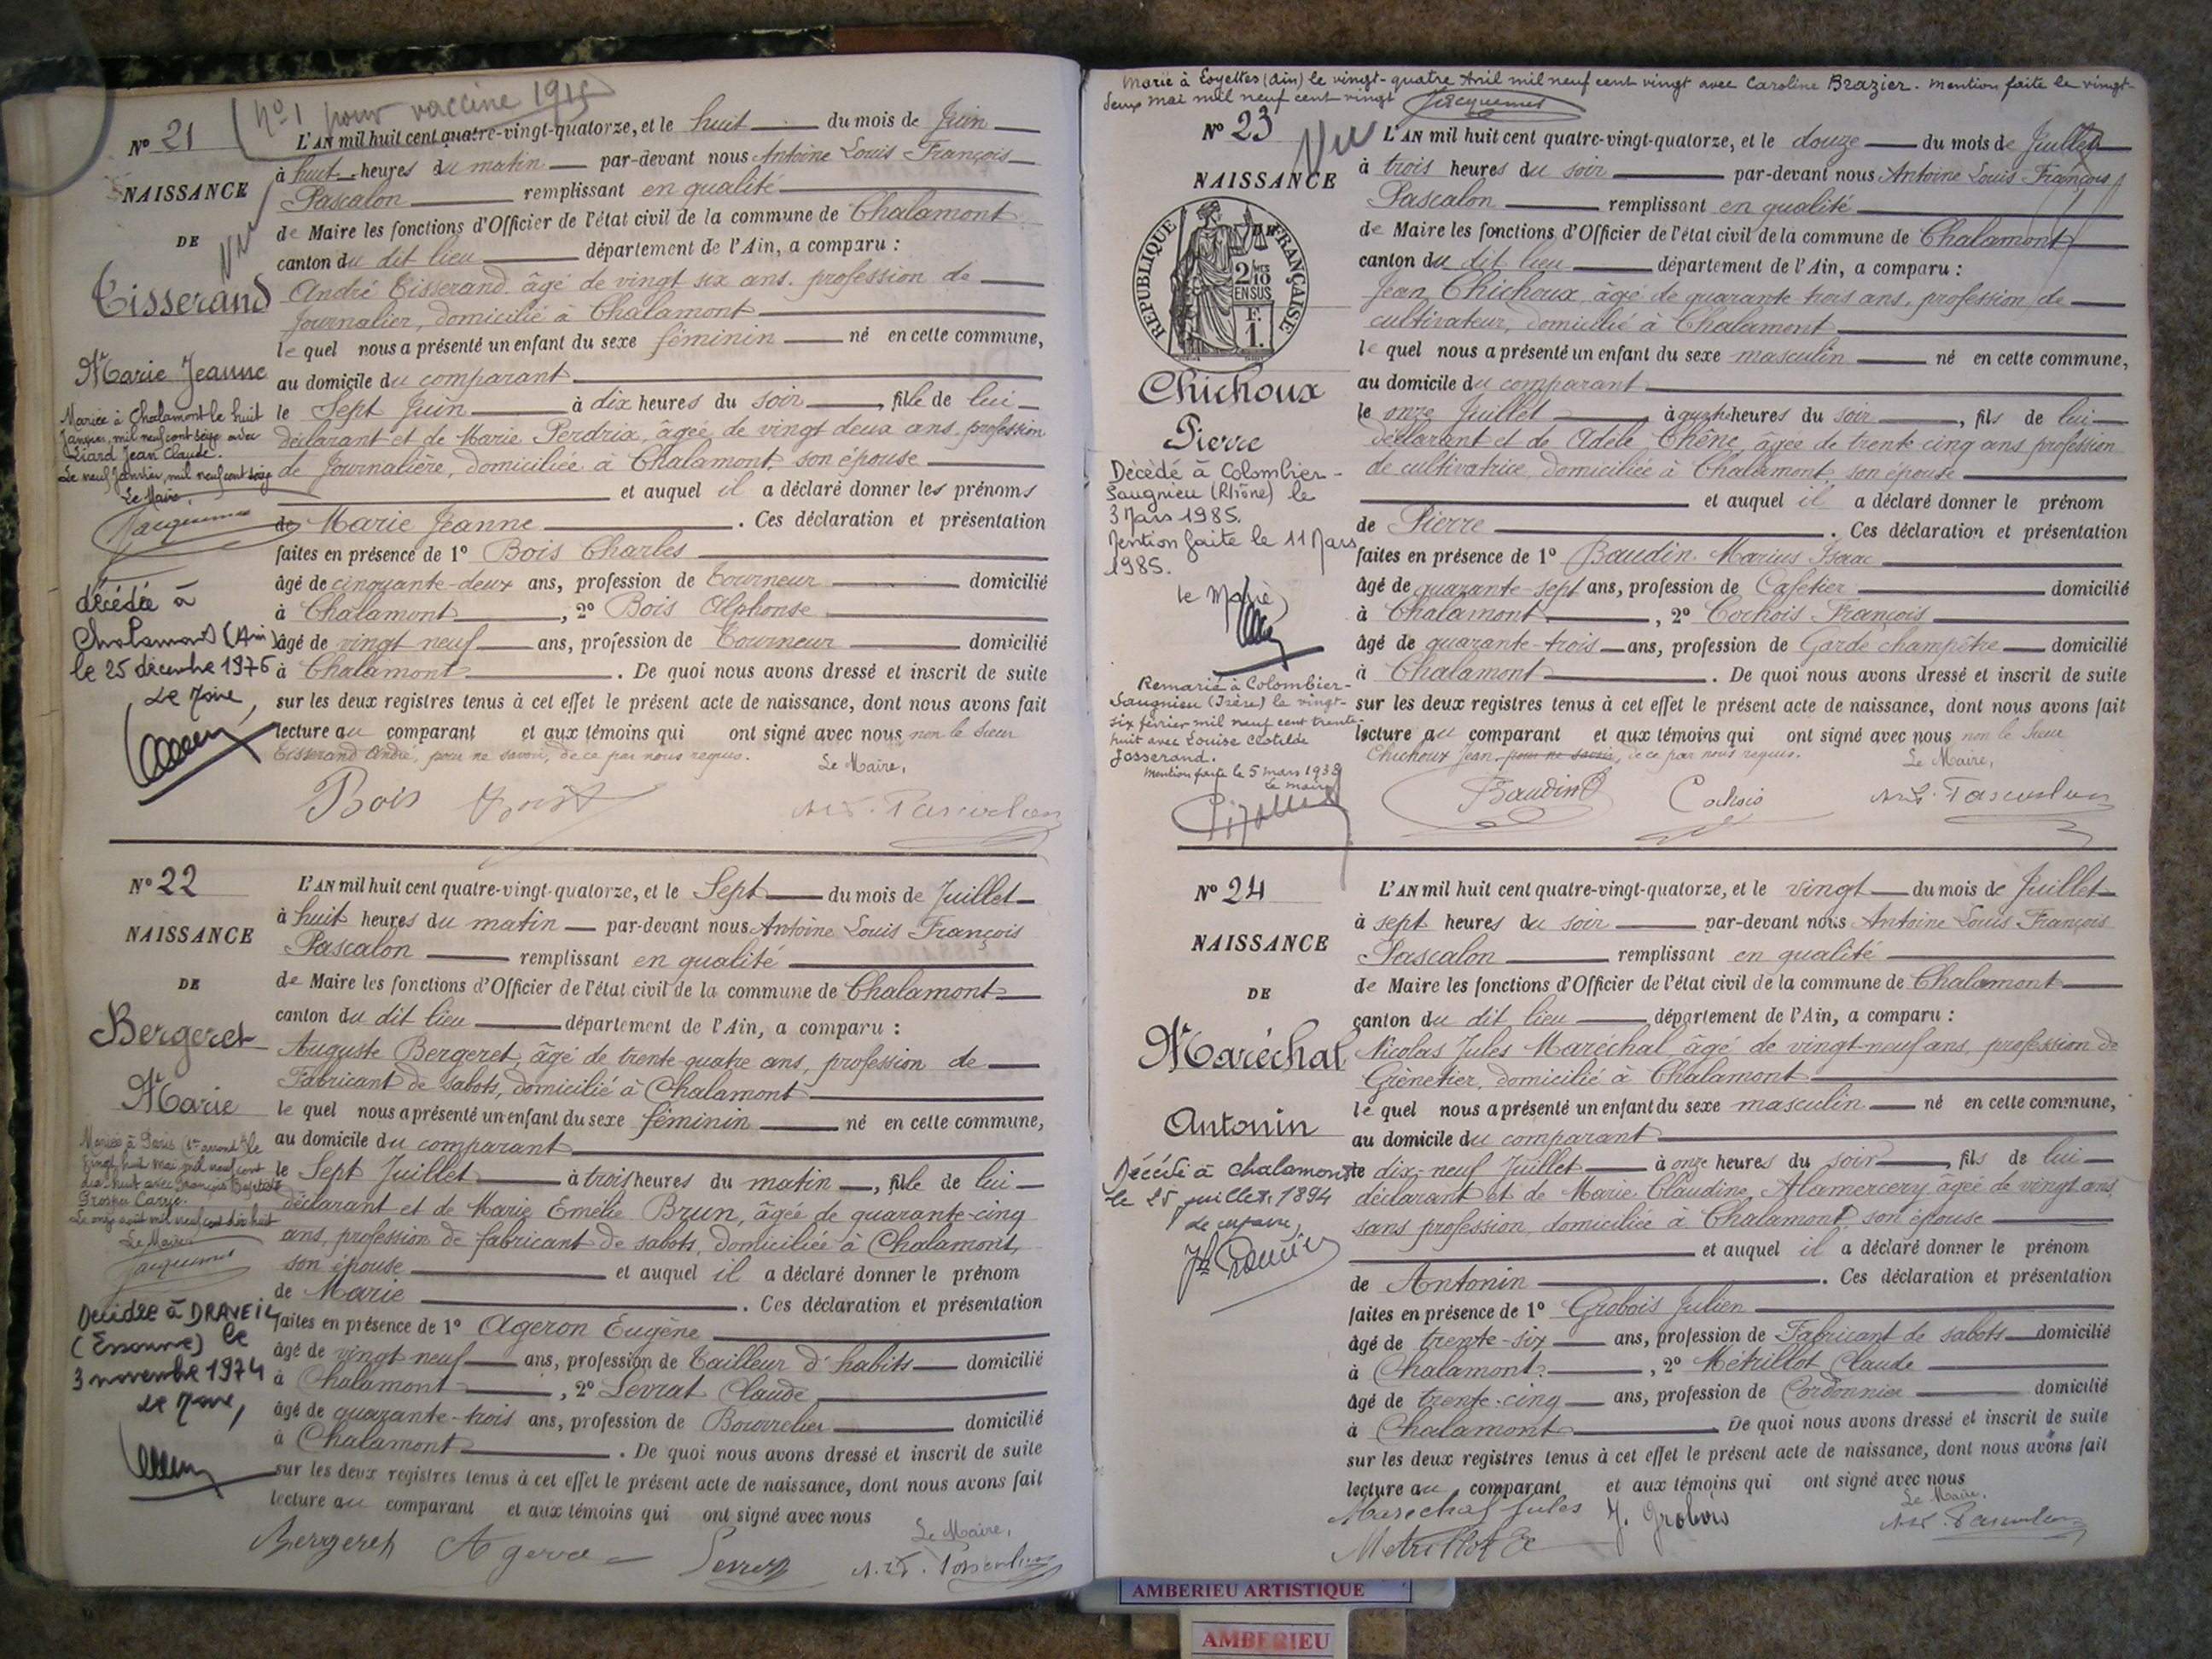 nº1 pour vaccine 1915
Nº 21
NAISSANCE
DE
Tisserand
Marie Jeanne
Mariée à Chalamont le huit
Janvier, mil neuf cent seize avec
Liard Jean Claude.
Le neuf Janvier, mil neuf cent seize
Le Maire,
Jacquemet
décédée à
Chalamont (Ain)
le 25 décembre 1976
Le Maire,
L'AN mil huit cent quatre-vingt-quatorze, et le huit du mois de Juin
à huit heures du matin par-devant nous Antoine Louis François
Pascalon remplissant en qualité
de Maire les fonctions d'Officier de l'état civil de la commune de Chalamont
canton du dit lieu département de l'Ain, a comparu :
André Tisserand âgé de vingt six ans, profession de
Journalier, domicilié à Chalamont
le quel nous a présenté un enfant du sexe féminin né en cette commune,
au domicile du comparant
le Sept Juin à dix heures du soir, fille de lui
déclarant et de Marie Perdrix, âgée de vingt deux ans, profession
de Journalière, domiciliée à Chalamont, son épouse
et auquel il a déclaré donner les prénoms
de Marie Jeanne. Ces déclaration et présentation
faites en présence de 1º Bois Charles
âgé de cinquante-deux ans, profession de Tourneur domicilié
à Chalamont, 2º Bois Alphonse
âgé de vingt neuf ans, profession de Tourneur domicilié
à Chalamont. De quoi nous avons dressé et inscrit de suite
sur les deux registres tenus à cet effet le présent acte de naissance, dont nous avons fait
lecture au comparant et aux témoins qui ont signé avec nous non le Sieur
Tisserand André, pour ne savoir, de ce par nous requis.
Le Maire,
Bois
Nº 22
NAISSANCE
DE
Bergeret
Marie
Mariée à Paris arrondt le
vingt huit mai mil neuf cent
dix-huit avec François Baptiste
Prosper
Le onze août mil neuf cent dix huit
Le Maire
Jacquemet
Décédée à DRAVEIL
(Essonne) le
3 novembre 1974
Le Maire,
L'AN mil huit cent quatre-vingt-quatorze, et le Sept du mois de Juillet
à huit heures du matin par-devant nous Antoine Louis François
Pascalon remplissant en qualité
de Maire les fonctions d'Officier de l'état civil de la commune de Chalamont
canton du dit lieu département de l'Ain, a comparu :
Auguste Bergeret, âgé de trente-quatre ans, profession de
Fabricant de sabots, domicilié à Chalamont
le quel nous a présenté un enfant du sexe féminin né en cette commune,
au domicile du comparant
le Sept Juillet à trois heures du matin, fille de lui
déclarant et de Marie Emélie Brun, âgée de quarante-cinq
ans, profession de fabricant de sabots, domiciliée à Chalamont,
son épouse et auquel il a déclaré donner le prénom
de Marie. Ces déclaration et présentation
faites en présence de 1º Ageron Eugène
âgé de vingt neuf ans, profession de Tailleur d'habits domicilié
à Chalamont, 2º Levrat Claude
âgé de quarante-trois ans, profession de Bourrelier domicilié
à Chalamont. De quoi nous avons dressé et inscrit de suite
sur les deux registres tenus à cet effet le présent acte de naissance, dont nous avons fait
lecture au comparant et aux témoins qui ont signé avec nous
Le Maire,
Bergeret Ageron Levrat
Marié à Loyettes (Ain) le vingt-quatre Avril mil neuf cent vingt avec Caroline Brazier. Mention faite le vingt-
deux mai mil neuf cent vingt Jacquemet
Nº 23
Vu
NAISSANCE
DE
RÉPUBLIQUE FRANÇAISE
2/10 EN SUS
F. 1.
Chichoux
Pierre
Décédé à Colombier-
Saugnieu (Rhône) le
3 Mars 1985.
Mention faite le 11 Mars
1985.
le Maire,
Remarié à Colombier-
Saugnieu (Isère) le vingt-
six février mil neuf cent trente
huit avec Louise Clotilde
Josserand.
Mention faite le 5 mars 1938
le maire
L'AN mil huit cent quatre-vingt-quatorze, et le douze du mois de Juillet
à trois heures du soir par-devant nous Antoine Louis François
Pascalon remplissant en qualité
de Maire les fonctions d'Officier de l'état civil de la commune de Chalamont
canton du dit lieu département de l'Ain, a comparu :
Jean Chichoux, âgé de quarante trois ans, profession de
cultivateur, domicilié à Chalamont
le quel nous a présenté un enfant du sexe masculin né en cette commune,
au domicile du comparant
le onze Juillet à heures du soir, fils de lui
déclarant et de Adèle Chêne, âgée de trente cinq ans profession
de cultivatrice, domiciliée à Chalamont, son épouse
et auquel il a déclaré donner le prénom
de Pierre. Ces déclaration et présentation
faites en présence de 1º Baudin Marius Isaac
âgé de quarante-sept ans, profession de Cafetier domicilié
à Chalamont, 2º Cochois François
âgé de quarante-trois ans, profession de Garde champêtre domicilié
à Chalamont. De quoi nous avons dressé et inscrit de suite
sur les deux registres tenus à cet effet le présent acte de naissance, dont nous avons fait
lecture au comparant et aux témoins qui ont signé avec nous non le Sieur
Chichoux Jean, pour ne savoir, de ce par nous requis.
Le Maire,
Baudin Cochois
Nº 24
NAISSANCE
DE
Maréchal
Antonin
Décédé à Chalamont
le 25 juillet 1894
L'AN mil huit cent quatre-vingt-quatorze, et le vingt du mois de Juillet
à sept heures du soir par-devant nous Antoine Louis François
Pascalon remplissant en qualité
de Maire les fonctions d'Officier de l'état civil de la commune de Chalamont
canton du dit lieu département de l'Ain, a comparu :
Nicolas Jules Maréchal, âgé de vingt-neuf ans, profession de
Grènetier, domicilié à Chalamont
le quel nous a présenté un enfant du sexe masculin né en cette commune,
au domicile du comparant
le dix-neuf Juillet à onze heures du soir, fils de lui
déclarant et de Marie Claudine Alamercery âgée de vingt ans
sans profession, domiciliée à Chalamont, son épouse
et auquel il a déclaré donner le prénom
de Antonin. Ces déclaration et présentation
faites en présence de 1º Grobois Julien
âgé de trente-six ans, profession de Fabricant de sabots domicilié
à Chalamont, 2º Métrillot Claude
âgé de trente-cinq ans, profession de Cordonnier domicilié
à Chalamont De quoi nous avons dressé et inscrit de suite
sur les deux registres tenus à cet effet le présent acte de naissance, dont nous avons fait
lecture au comparant et aux témoins qui ont signé avec nous
Le Maire,
Maréchal Jules J. Grobois
Métrillot Cde
AMBERIEU ARTISTIQUE
AMBERIEU